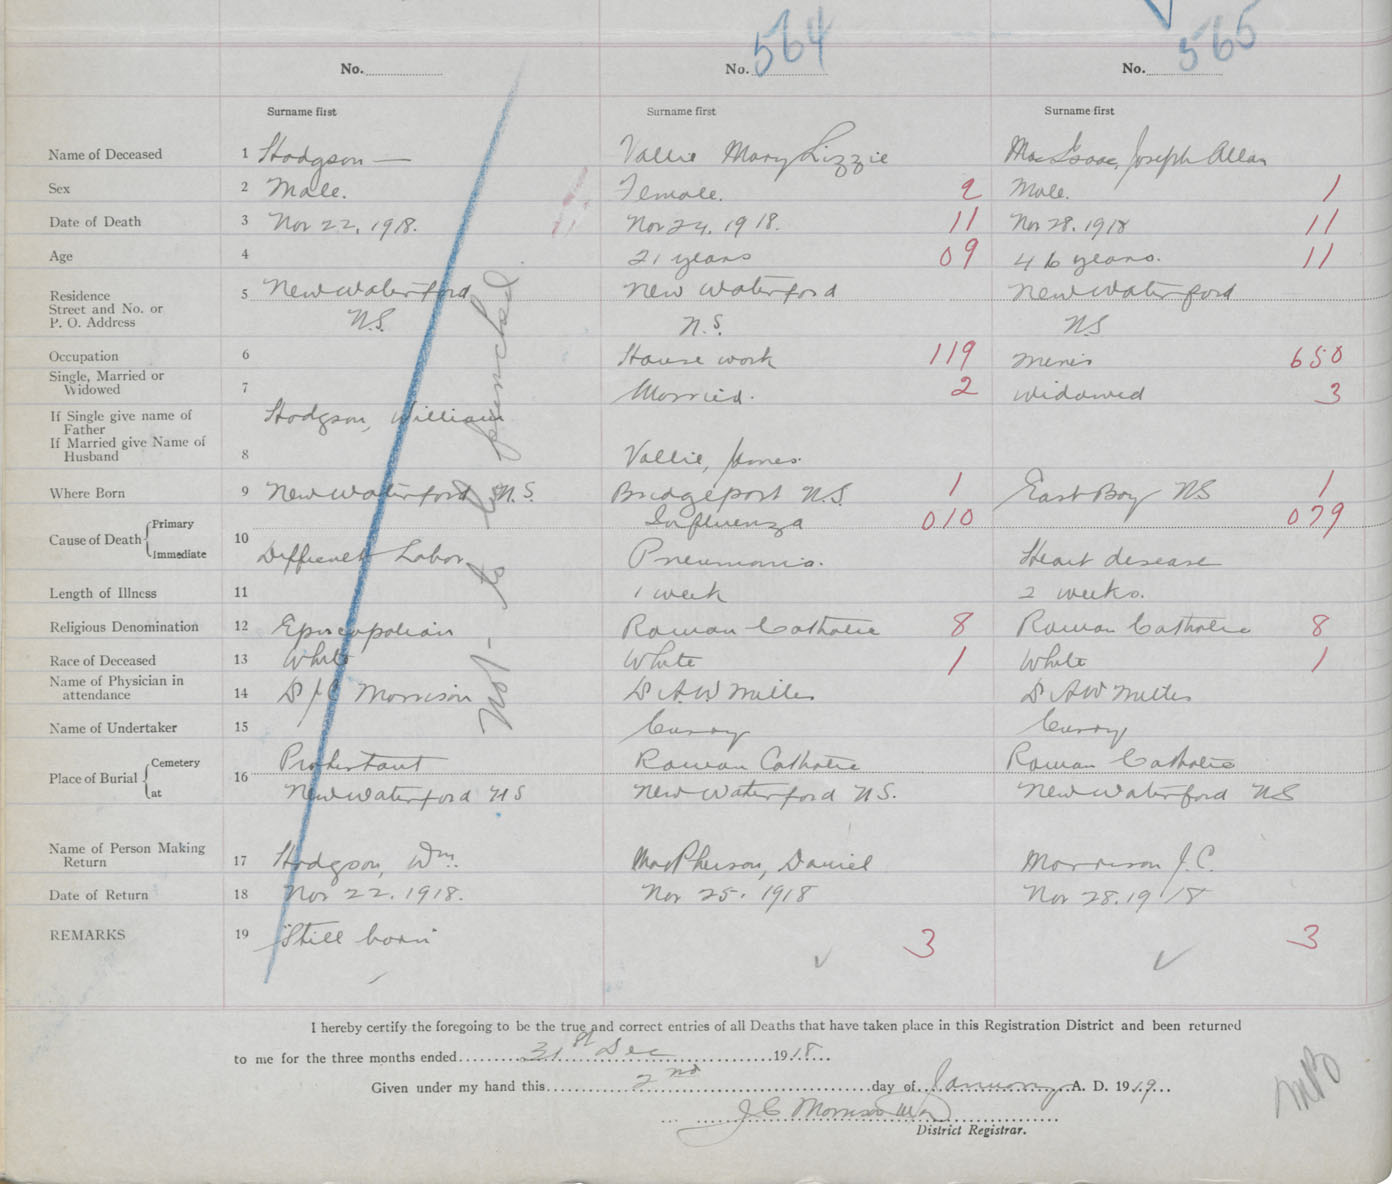 564
565
No. No. No.
Surname first Surname first Surname first
Name of Deceased 1 Hodgson — Vallie Mary Lizzie MacIsaac, Joseph Allan
Sex 2 Male. Female. 2 Male. 1
Date of Death 3 Nov 22, 1918. Nov 24, 1918. 11 Nov 28, 1918 11
Age 4 21 years 09 46 years. 11
Residence
Street and No. or
P. O. Address
5 New Waterford New Waterford New Waterford
N.S. N.S. NS
Occupation 6 House work 119 miner 650
Single, Married or
Widowed
7 Married. 2 widowed 3
If Single give name of
Father
Hodgson, William
If Married give Name of
Husband
8 Vallie, James
Where Born 9 New Waterford N.S. Bridgeport N.S. 1 East Bay NS 1
Cause of Death Primary 10 Influenza 010 079
Immediate Difficult Labor Pneumonia. Heart disease
Length of Illness 11 1 week 2 weeks.
Religious Denomination 12 Episcopalian Roman Catholic 8 Roman Catholic 8
Race of Deceased 13 White White 1 White 1
Name of Physician in
attendance
14 Dr J C Morrison Dr A.W. Miller Dr A W Miller
Name of Undertaker 15 Curry Curry
Place of Burial Cemetery 16 Protestant Roman Catholic Roman Catholic
at New Waterford NS New Waterford N.S. New Waterford NS
Name of Person Making
Return
17 Hodgson, Wm. MacPherson, Daniel Morrison J.C.
Date of Return 18 Nov 22, 1918. Nov 25, 1918 Nov 28, 1918
REMARKS 19 "Still born" 3 3
Not - to be punched.
I hereby certify the foregoing to be the true and correct entries of all Deaths that have taken place in this Registration District and been returned
to me for the three months ended 31st Dec 1918
Given under my hand this 2nd day of January A. D. 1919
J C Morrison
District Registrar.